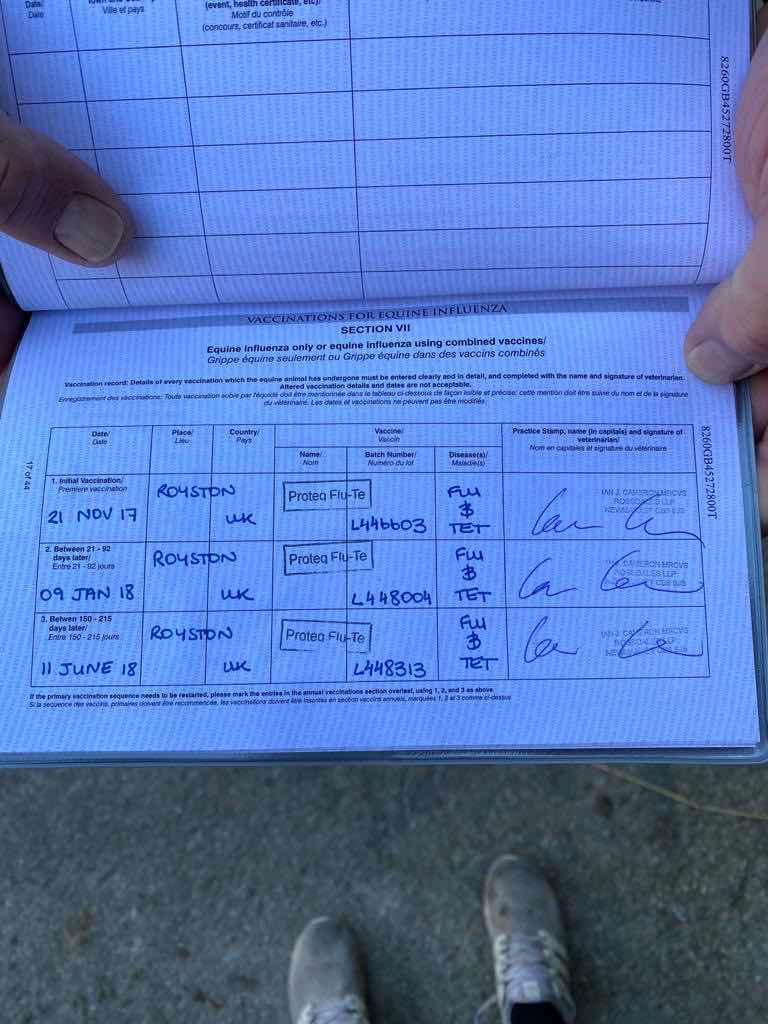 Date/
Date
Ville et pays
(event, health certificate, etc)/
Motif du contrôle
(concours, certificat sanitaire, etc.)
8260GB45272800T
VACCINATIONS FOR EQUINE INFLUENZA
SECTION VII
Equine influenza only or equine influenza using combined vaccines/
Grippe équine seulement ou Grippe équine dans des vaccins combinés
Vaccination record: Details of every vaccination which the equine animal has undergone must be entered clearly and in detail, and completed with the name and signature of veterinarian.
Altered vaccination details and dates are not acceptable.
Enregistrement des vaccinations: Toute vaccination subie par l'équidé doit être mentionnée dans le tableau ci-dessous de façon lisible et précise; cette mention doit être suivie du nom et de la signature
du vétérinaire. Les dates et vaccinations ne peuvent pas être modifiés.
17 of 44
8260GB45272800T
Date/
Date
Place/
Lieu
Country/
Pays
Vaccine/
Vaccin
Name/
Nom
Batch Number/
Numéro du lot
Disease(s)/
Maladie(s)
Practice Stamp, name (in capitals) and signature of
veterinarian/
Nom en capitales et signature du vétérinaire
1. Initial Vaccination/
Première vaccination
21 NOV 17
ROYSTON
UK
Proteq Flu-Te
L446603
FLU
&
TET
IAN J. CAMERON MRCVS
ROSSDALES LLP
NEWMARKET CB8 8JS
2. Between 21 - 92
days later/
Entre 21 - 92 jours
09 JAN 18
ROYSTON
UK
Proteq Flu-Te
L448004
FLU
&
TET
CAMERON MRCVS
ROSSDALES LLP
3. Betwen 150 - 215
days later/
Entre 150 - 215 jours
11 JUNE 18
ROYSTON
UK
Proteq Flu-Te
L448313
FLU
&
TET
IAN J. CAMERON MRCVS
If the primary vaccination sequence needs to be restarted, please mark the entries in the annual vaccinations section overleaf, using 1, 2, and 3 as above
Si la sequence des vaccins, primaires doivent être recommencés, les vaccinations doivent être inscrites en section vaccins annuels, marquées 1, 2 et 3 comme ci-dessus